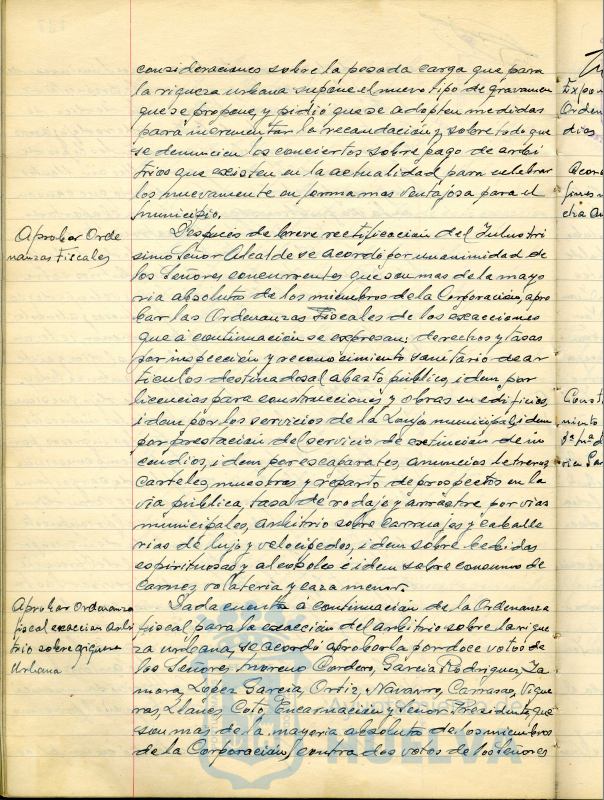 consideraciones sobre la pesada carga que para
la riqueza urbana supone el nuevo tipo de gravamen
que se propone, y pidió que se adopten medidas
para incrementar la recaudación y sobre todo que
se denuncien los conciertos sobre pago de arbi
trios que existen en la actualidad para celebrar
los nuevamente en forma mas ventajosa para el
municipio.
Aprobar Orde
nanzas fiscales
Despues de breve rectificación del Ilustri
simo Señor Alcalde se acordó por unanimidad de
los Señores concurrentes que son mas de la mayo
ria absoluta de los miembros de la Corporación, apro
bar las Ordenanzas Fiscales de las exacciones
que á continuación se expresan: derechos y tasas
por inspección y reconocimiento sanitario de ar
ticulos destinados al abasto público, idem por
licencias para construcciones y obras en edificios,
idem por los servicios de la Lonja municipal, idem
por prestación del servicio de extinción de in
cendios, idem por escaparates, anuncios letreros
carteles, muestras y reparto de prospectos en la
via pública, tasa de rodaje y arrastre por vias
municipales, arbitrio sobre carruajes y caballe
rias de lujo y velocipedos, idem sobre bebidas
espirituosas y alcoholes é idem sobre consumo de
carnes, volateria y caza menor.
Aprobar Ordenanza
fiscal exaccion arbi
trio sobre riqueza
Urbana
Dada cuenta á continuación de la Ordenanza
fiscal para la exacción del arbitrio sobre la rique
za urbana, se acordó aprobarla por doce votos de
los Señores, Moreno Cordero, García Rodriguez, Za
mora, Lopez Garcia, Ortiz, Navarro, Carrasco, Vigue
ras, Llanes, Coto, Encarnación y Señor Presidente, que
son mas de la mayoria absoluta de los miembros
de la Corporación, contra dos votos de los Señores
Expo
Orden
dias
Const
miento
HUELVA